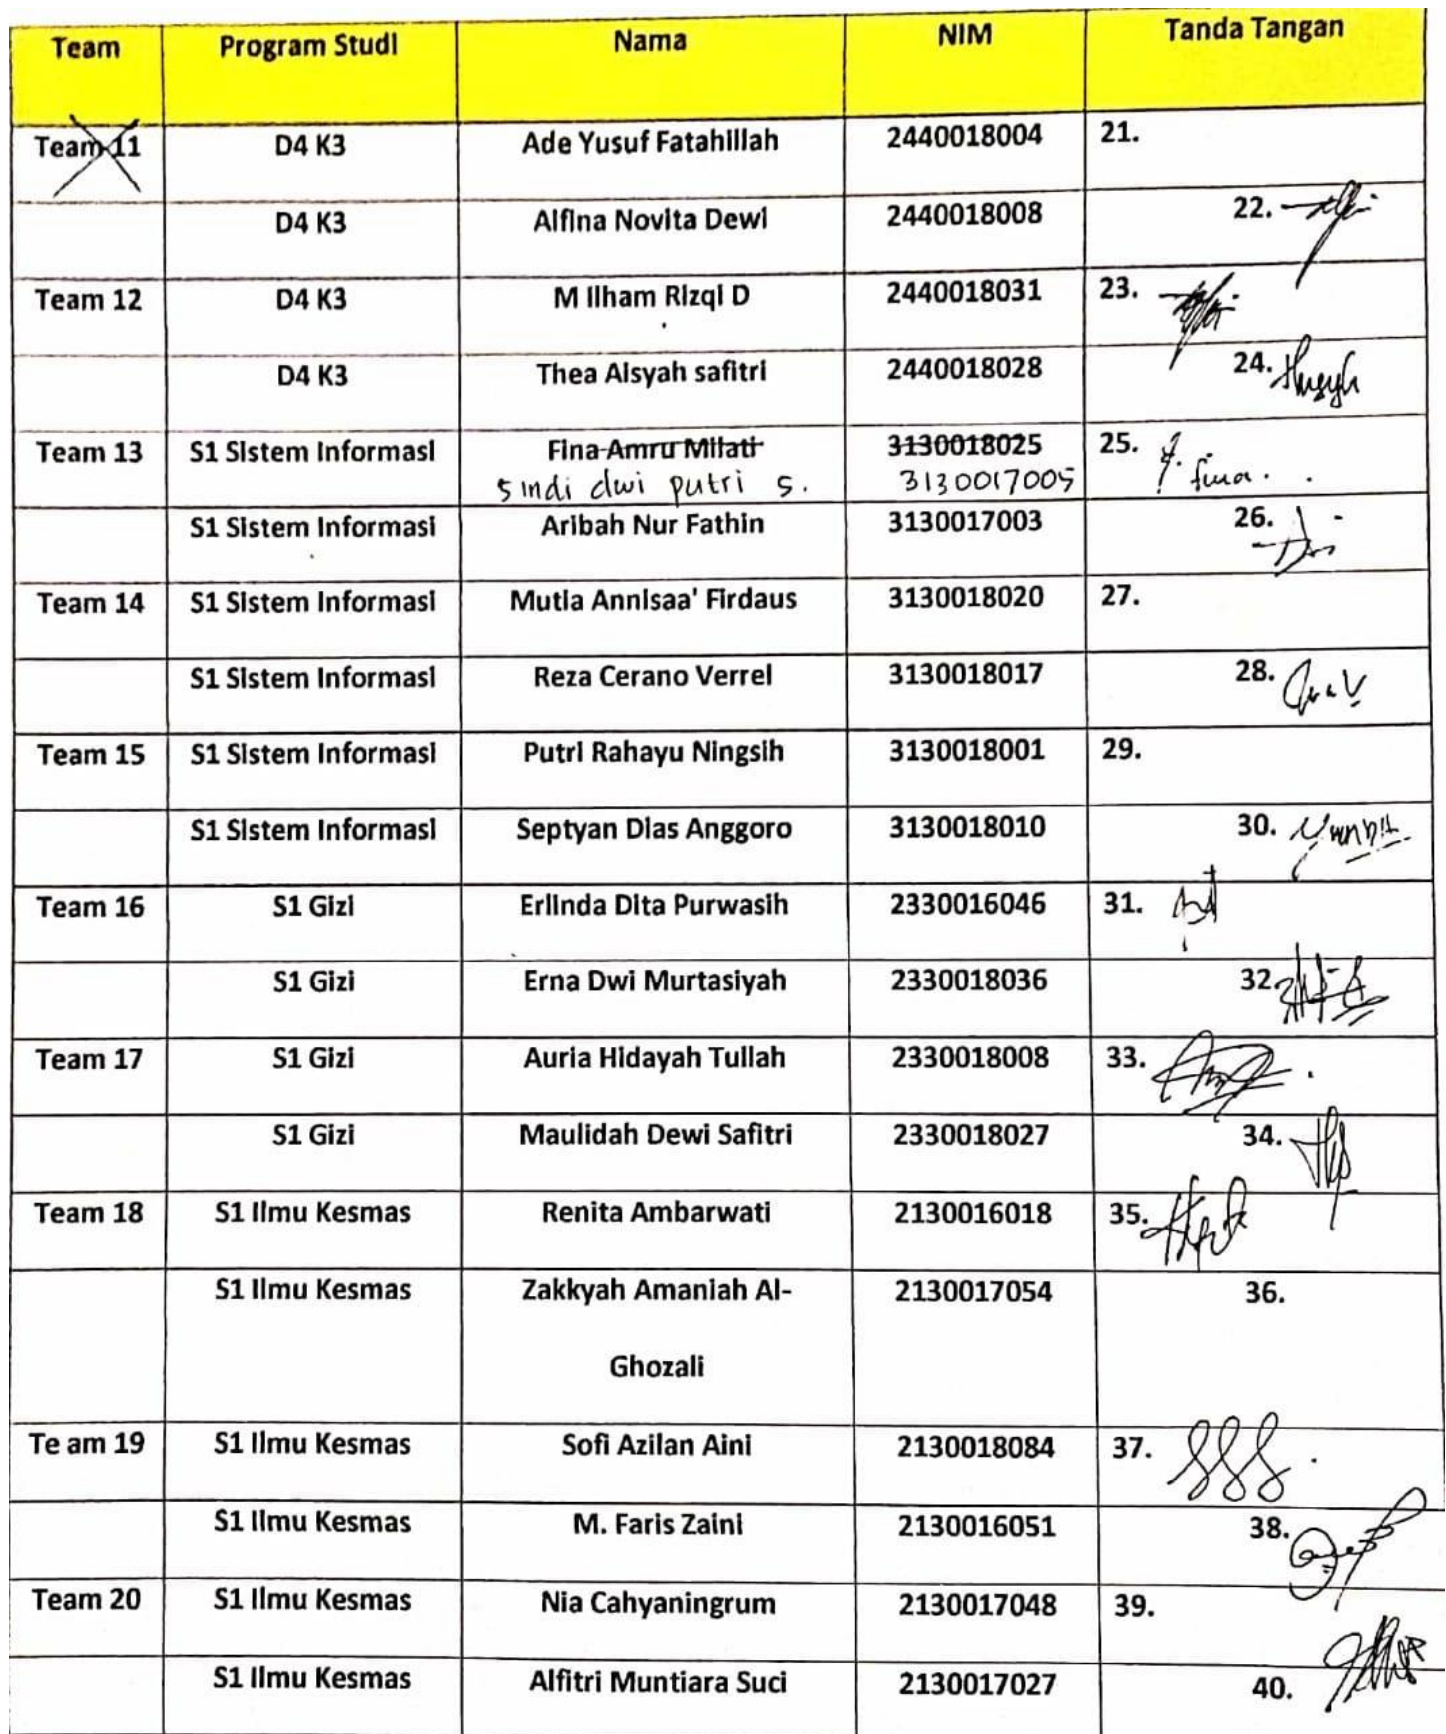 Team Program Studi Nama NIM Tanda Tangan
Team 11 D4 K3 Ade Yusuf Fatahillah 2440018004 21.
D4 K3 Alfina Novita Dewi 2440018008 22.
Team 12 D4 K3 M Ilham Rizqi D 2440018031 23.
D4 K3 Thea Aisyah safitri 2440018028 24.
Team 13 S1 Sistem Informasi Fina Amru Milati 3130018025 25.
sindi dwi putri s. 3130017005 fina.
S1 Sistem Informasi Aribah Nur Fathin 3130017003 26.
Team 14 S1 Sistem Informasi Mutia Annisaa' Firdaus 3130018020 27.
S1 Sistem Informasi Reza Cerano Verrel 3130018017 28.
Team 15 S1 Sistem Informasi Putri Rahayu Ningsih 3130018001 29.
S1 Sistem Informasi Septyan Dias Anggoro 3130018010 30.
Team 16 S1 Gizi Erlinda Dita Purwasih 2330016046 31.
S1 Gizi Erna Dwi Murtasiyah 2330018036 32.
Team 17 S1 Gizi Auria Hidayah Tullah 2330018008 33.
S1 Gizi Maulidah Dewi Safitri 2330018027 34.
Team 18 S1 Ilmu Kesmas Renita Ambarwati 2130016018 35.
S1 Ilmu Kesmas Zakkyah Amaniah Al- 2130017054 36.
Ghozali
Te am 19 S1 Ilmu Kesmas Sofi Azilan Aini 2130018084 37.
S1 Ilmu Kesmas M. Faris Zaini 2130016051 38.
Team 20 S1 Ilmu Kesmas Nia Cahyaningrum 2130017048 39.
S1 Ilmu Kesmas Alfitri Muntiara Suci 2130017027 40.